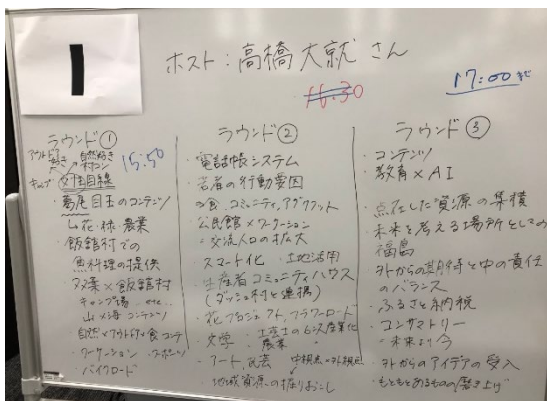 1
ホスト：高橋大就さん
16:30
17:00まで
ラウンド①
アウトドア好き
自然好き
村コン
キャンプ
女性目線
15:50
・葛尾目玉のコンテンツ
↳花・緑・農業
・飯舘村での
魚料理の提供
・双葉×飯舘村
キャンプ場…etc..
山×海コンテンツ
・自然×アウトドア×食コンテ
・ワーケーション・スポーツ
・バイクロード
ラウンド②
・電話帳システム
・若者の行動要因
⇒食、コミュニティ、アグリ
・公民館×ワーケーション
=交流人口の拡大
・スマート化・土地活用
・生産者コミュニティハウス
(ダッシュ村と連携)
・花プロジェクト、フラワーロード
・文学・
の6次産業化
農業
・アート、民芸
中視点×外視点
・地域資源の掘りおこし
ラウンド③
・コンテンツ
・教育×AI
・点在した資源の集積
・未来を考える場所としての
福島
・外からの期待と中の責任
のバランス
・ふるさと納税
・コンサマトリー
=未来より今
・外からのアイデアの受入
・もともとあるものの磨き上げ